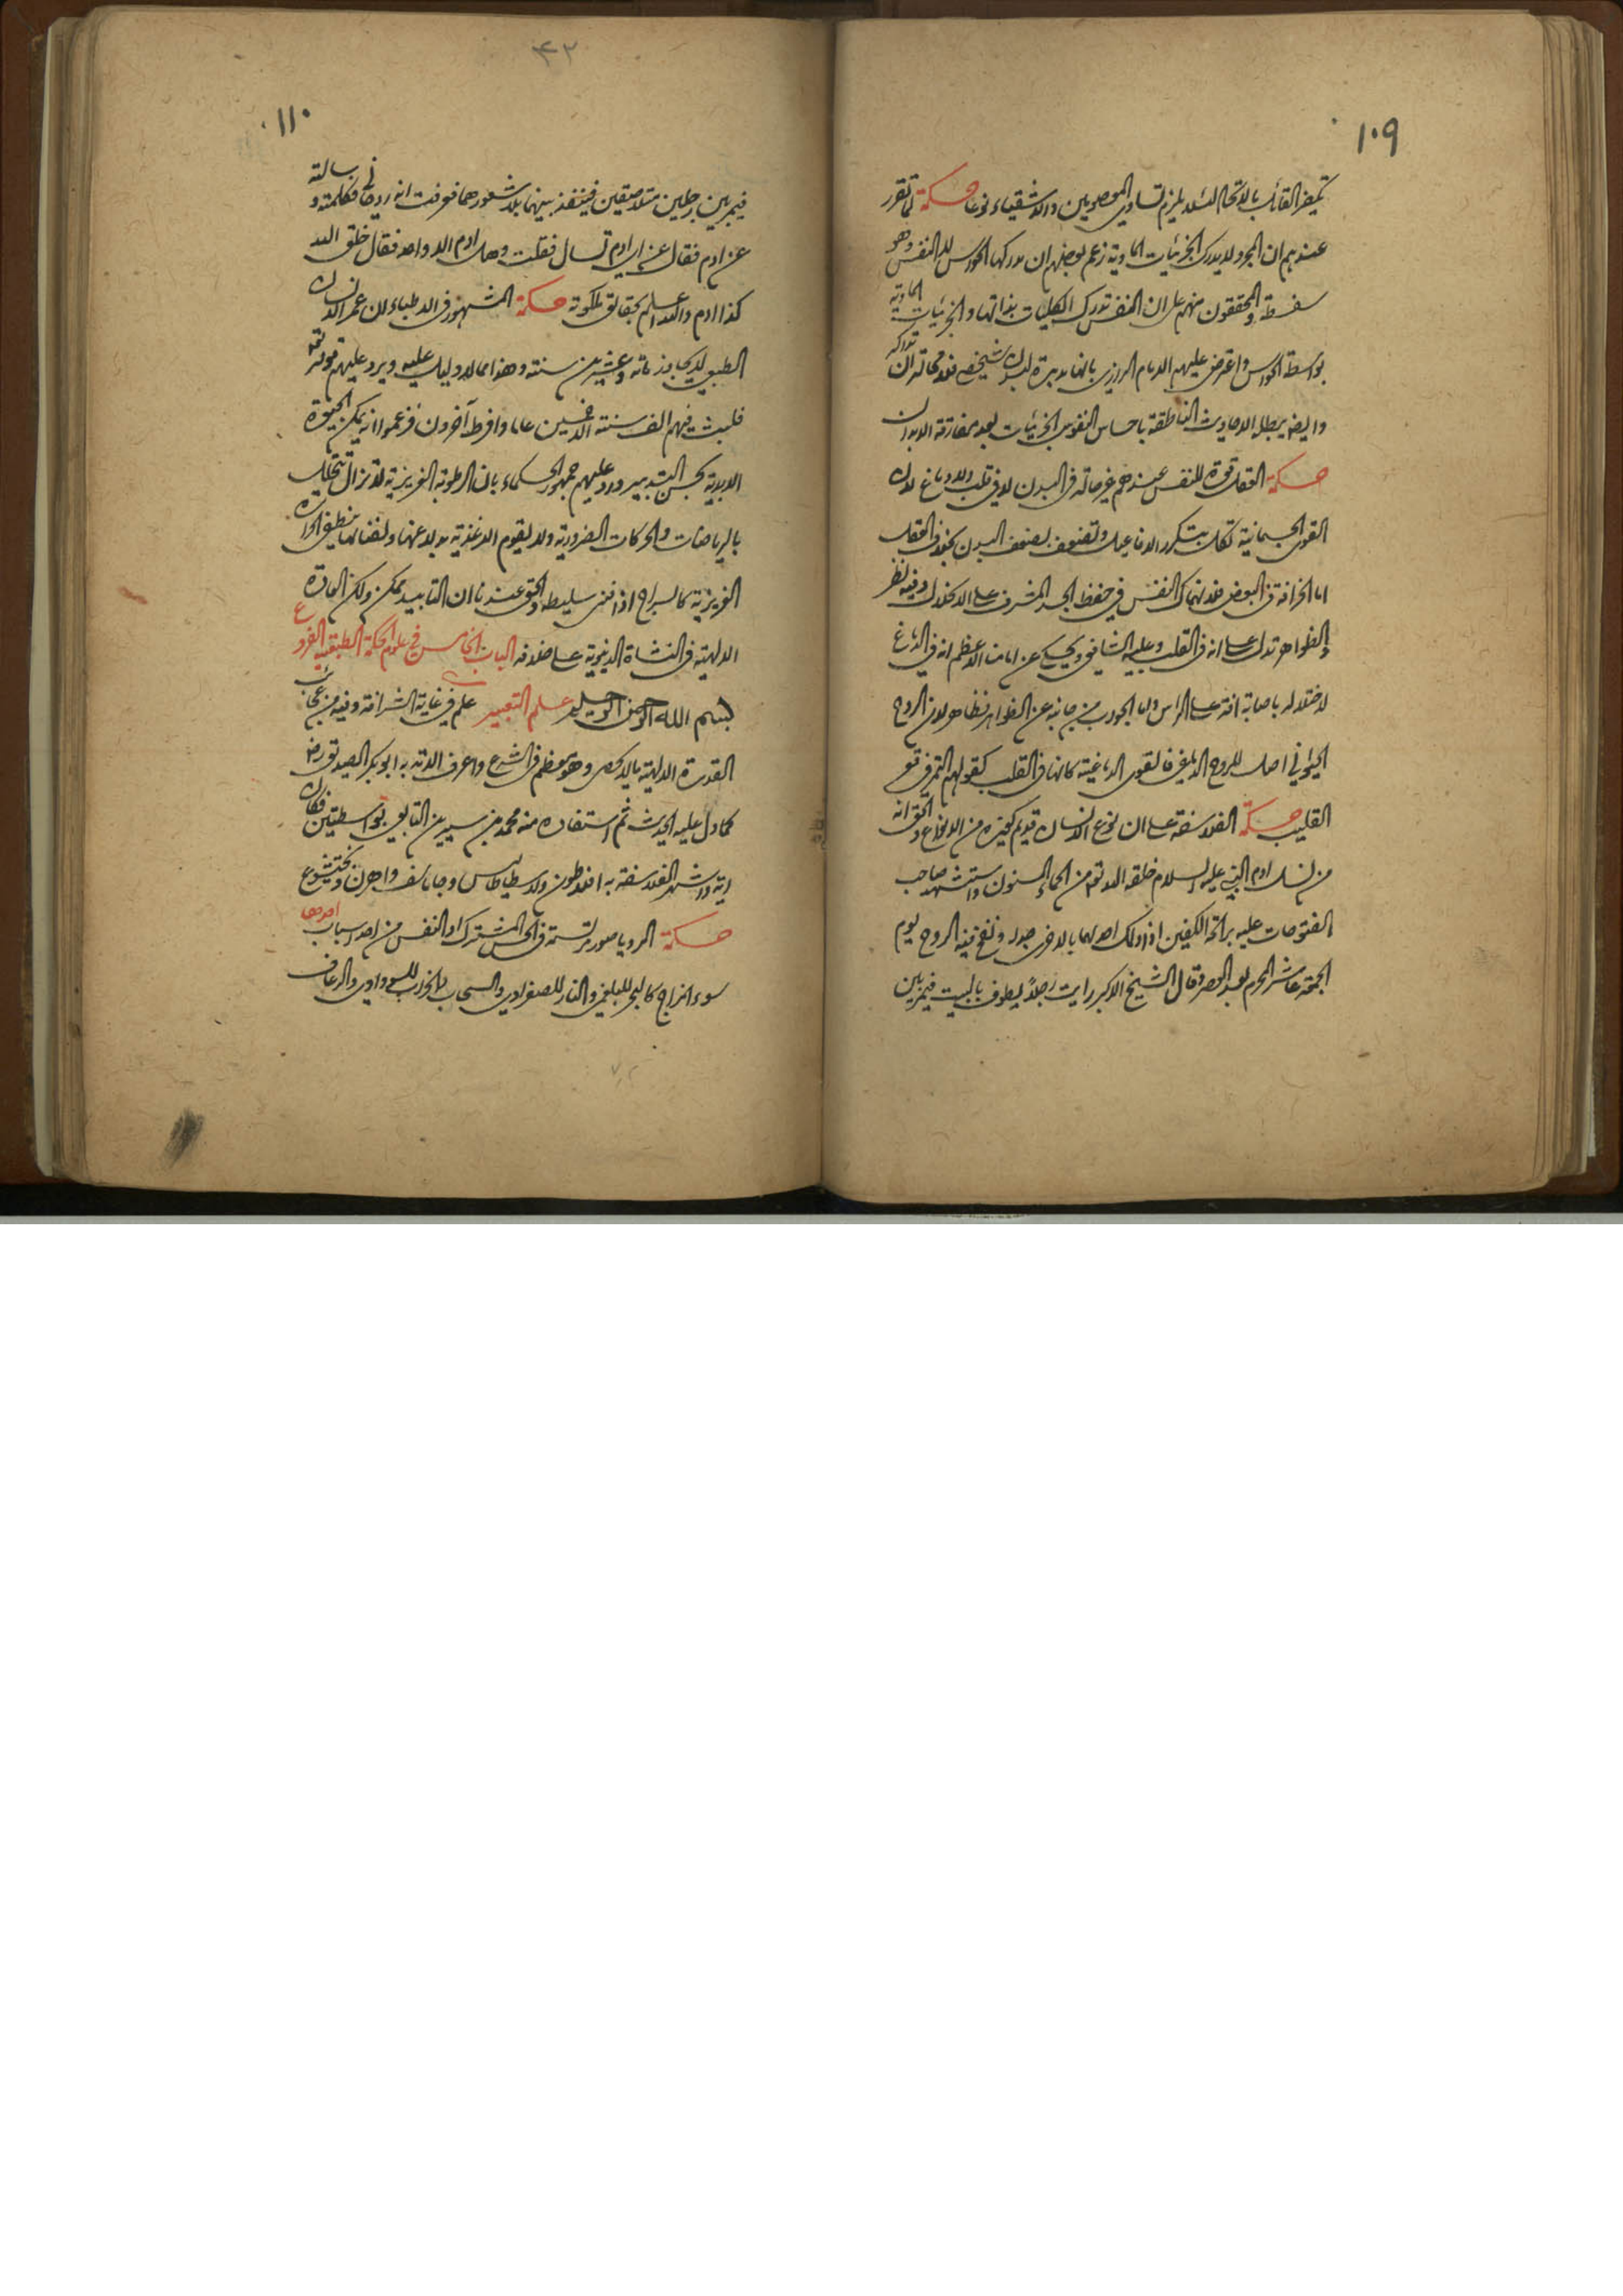 ١٠٩
تكفير القائل بالاتحاد لئلا يلزم تساوي المعصومين والاشقياء نوعا حكمة لما تقرر
عندهم ان المجرد لا يدرك الجزئيات المادية زعم بعضهم ان مدركها الحواس لا النفس وهو
سفسطة والمحققون منهم على ان النفس تدرك الكليات بذاتها والجزئيات المادية
بواسطة الحواس واعترض عليهم الامام الرازي بانها مدبرة لبدن شخصي فلا محالة ان تدركه
وايضا يبطل الاحاديث الناطقة باحساس النفوس الجزئيات بعد مفارقة الابدان
حكمة العقل قوة للنفس عندهم غير حالة في البدن لا في قلب ولا دماغ لان
القوى الجسمانية تكل بتكرر الافاعيل وتضعف بضعف البدن بخلاف العقل
اما الخرافة في البعض فلانهماك النفس في حفظ الجسد المشرف على الانحلال وفيه نظر
والظواهر تدل على انه في القلب وعليه الشافعي ويحكى عن امامنا الاعظم انه في الدماغ
لاختلاله باصابة افة على الراس واما الجواب من جانبه عن الظواهر فظاهر لان الروح
الحيواني اصل للروح الدماغي فالقوى الدماغية كانها في القلب كقولهم التمر في قعر
القليب حكمة الفلاسفة على ان نوع الانسان قديم كغيره من الانواع والحق انه
من نسل ادم النبي عليه السلام خلقه الله تعالى من الحماء المسنون واستشهد صاحب
الفتوحات عليه برائحة الكفين اذا دلك احدهما بالاخرى جدا ونفخ فيه الروح يوم
الجمعة عاشر المحرم بعد العصر وقال الشيخ الاكبر رايت رجلا يطوف بالبيت فيمر بين
٤٢
١١٠
فيمر بين رجلين متلاصقين فينفذ بينهما بلا شعورهما فعرفت انه روحاني فكلمته وسالته
عن ادم فقال عن اي ادم تسال فقلت وهل ادم الا واحد فقال خلق الله
كذا ادم والله اعلم بحقائق ملكوته حكمة المشهور في الاطباء ان عمر الانسان
الطبيعي لا يجاوز مائة وعشرين سنة وهذا مما لا دليل عليه ويرد عليهم قوله تعالى
فلبث فيهم الف سنة الا خمسين عاما وافرط آخرون فزعموا انه يمكن الحيوة
الابدية بحسن التدبير ورد عليهم جمهور الحكماء بان الرطوبة الغريزية لا تزال تتحلل
بالرياضات والحركات الضرورية ولا يقوم الاغذية بدلا عنها وبفنائها ينطفي الحرارة
الغريزية كالسراج اذا فني سليطه والحق عندنا ان التابيد ممكن ولكن العادة
الالهية في النشاة الدنيوية على خلافه الباب الخامس في علوم الحكمة الطبيعية الفروع
بسم الله الرحمن الرحيم علم التعبير علم في غاية الشرافة وفيه من عجائب
القدرة الالهية ما لا يحصى وهو معظم في الشرع واعرف الامة به ابو بكر الصديق رض
كما دل عليه الحديث ثم استفاده منه محمد بن سيرين التابعي بواسطتين فكان
اية واشتهر الفلاسفة به افلاطون وارسطاطاليس وجاماسف واهرن وبختيشوع
حكمة الرويا صور مرتسمة في الحس المشترك او النفس من احد اسباب احدها
سوء المزاج كالبحر للبلغمي والنار للصفراوي والسحاب والخراب للسوداوي والرعاف